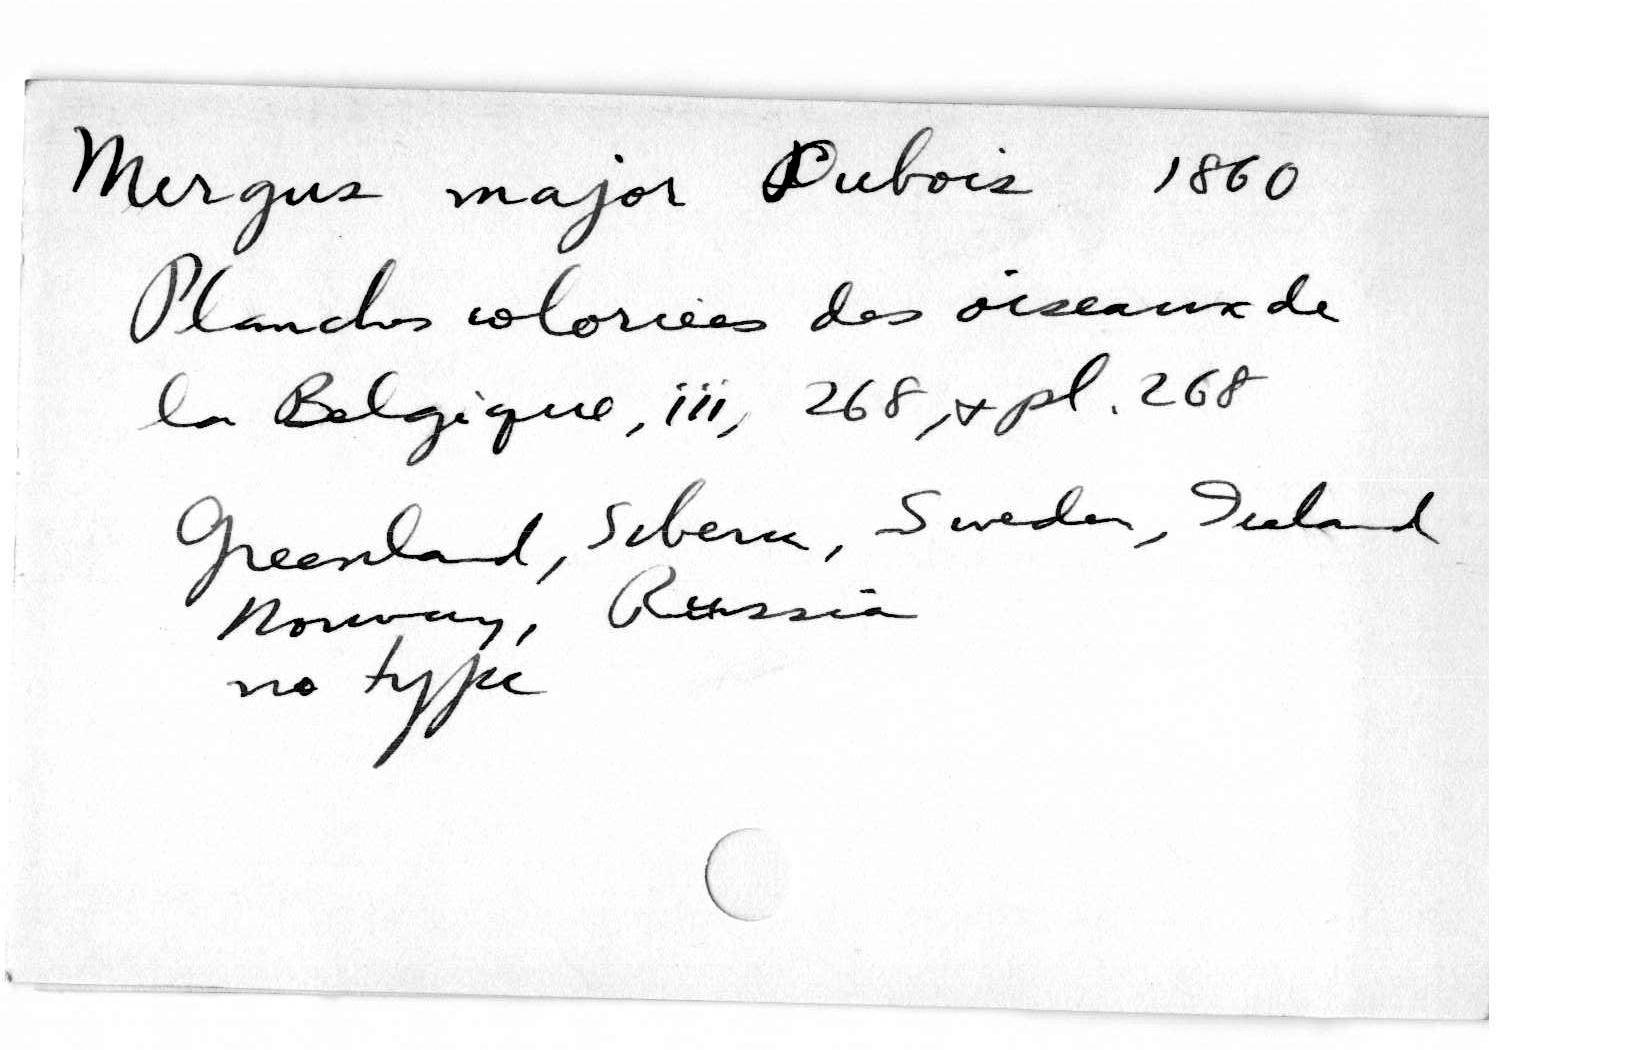 Mergus major Dubois 1860
Planches coloriées des oiseaux de
la Belgique, iii, 268, & pl. 268
Greenland, Siberia, Sweden, Iceland
Norway, Russia
no type